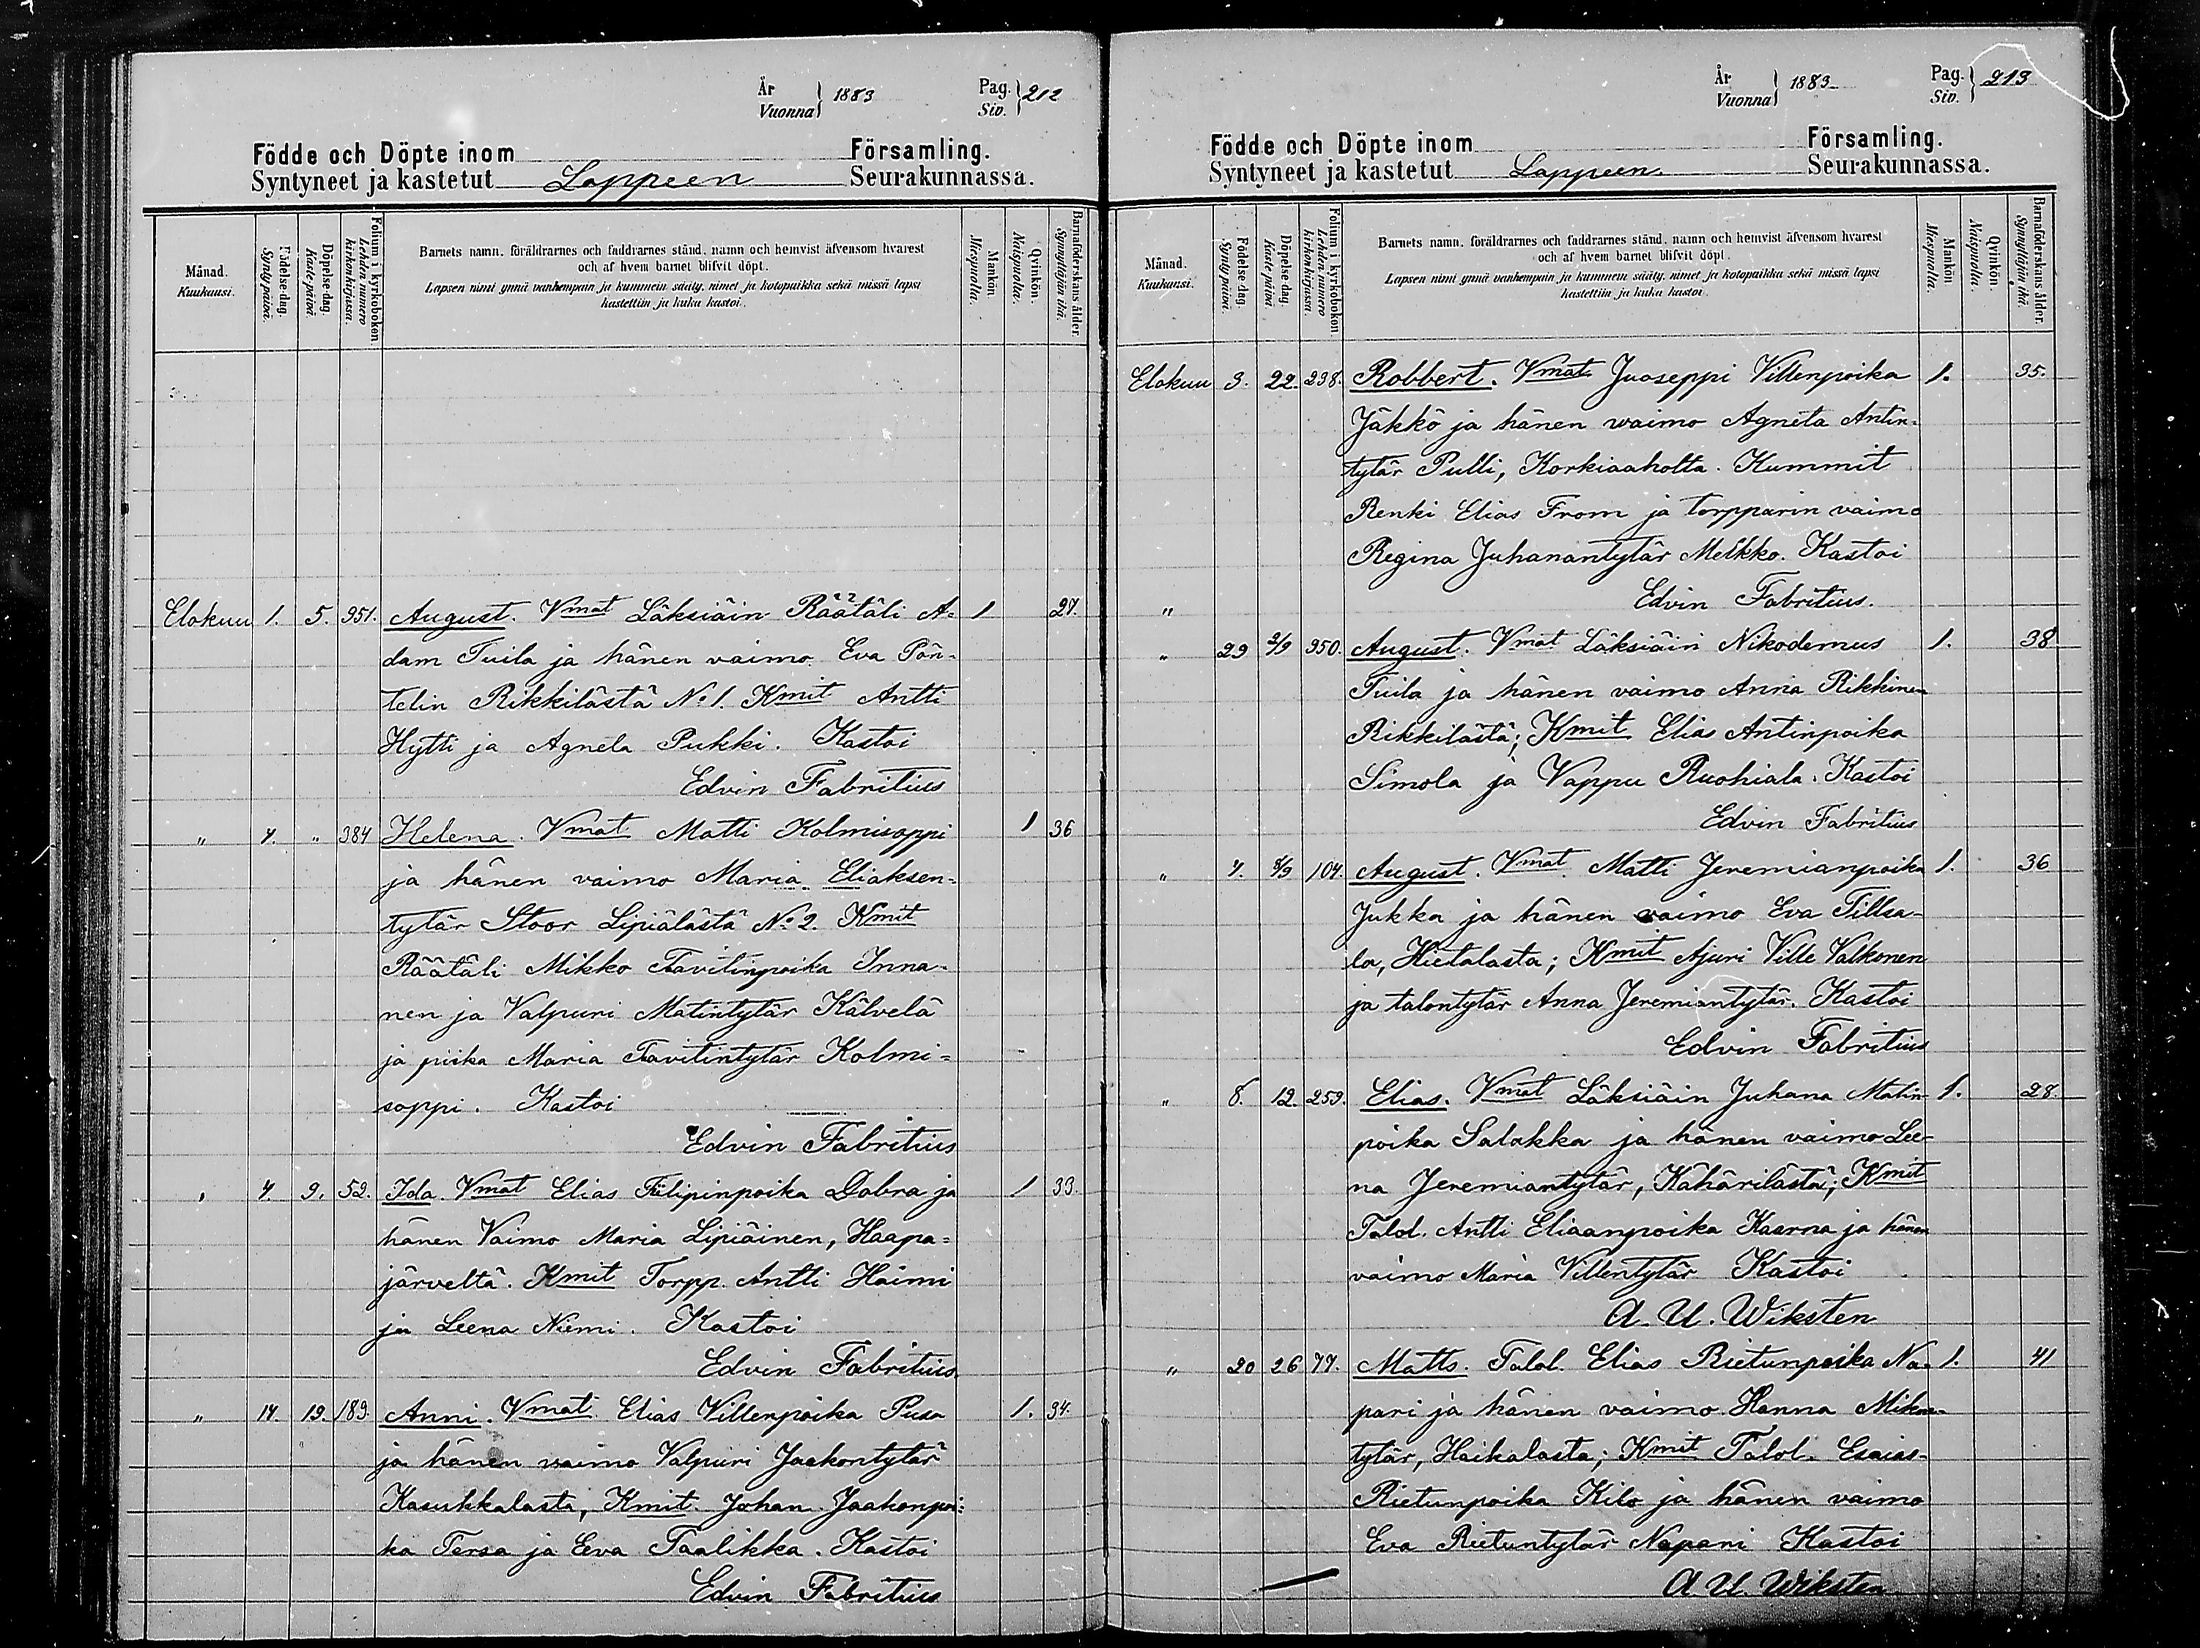 År
Vuonna } 1883
Pag.
Siv. } 212
Födde och Döpte inom Församling.
Syntyneet ja kastetut Lappeen Seurakunnassa.
Månad.
Kuukausi.
Födelse-dag.
Syntypäivä.
Döpelse-dag.
Kastepäivä
Folium i kyrkoboken
Lehden numero
kirkonkirjassa.
Barnets namn, föräldrarnes och faddrarnes stånd, namn och hemvist äfvensom hvarest
och af hvem barnet blifvit döpt.
Lapsen nimi ynnä vanhempain ja kummein sääty, nimet ja kotopaikka sekä missä lapsi
kastettiin ja kuka kastoi.
Mankön.
Miespuolia.
Qvinkön.
Naispuolia.
Barnaföderskans ålder.
Synnyttäjän ikä.
Elokuu 1. 5. 351. August. Vmat Läksiäin Räätäli A- 1 27.
dam Tuila ja hänen vaimo Eva Pön-
telin Rikkilästä No 1. Kmit Antti
Hytti ja Agneta Pukki. Kastoi
Edvin Fabritius
" 4. " 384 Helena. Vmat Matti Kolmisoppi 1 36
ja hänen vaimo Maria Eliaksen-
tytär Stoor Lipiälästä No 2. Kmit
Räätäli Mikko Taavitinpoika Inna-
nen ja Valpuri Matintytär Kälvelä
ja piika Maria Taavitintytär Kolmi-
soppi. Kastoi
Edvin Fabritius
" 4. 9. 52. Ida. Vmat Elias Filipinpoika Dobra ja 1 33.
hänen Vaimo Maria Lipiäinen, Haapa-
järveltä. Kmit Torpp. Antti Haimi
ja Leena Niemi. Kastoi
Edvin Fabritius
" 14. 19. 189. Anni. Vmat Elias Villenpoika Pusa 1. 34.
ja hänen vaimo Valpuri Jaakontytär
Kasukkalasta, Kmit Johan Jaakonpoi-
ka Tersa ja Eeva Taalikka. Kastoi
Edvin Fabritius
År
Vuonna } 1883
Pag.
Siv. } 213
Födde och Döpte inom Församling.
Syntyneet ja kastetut Lappeen Seurakunnassa.
Månad.
Kuukausi.
Födelse-dag.
Syntypäivä.
Döpelse-dag.
Kastepäivä
Folium i kyrkoboken
Lehden numero
kirkonkirjassa.
Barnets namn, föräldrarnes och faddrarnes stånd, namn och hemvist äfvensom hvarest
och af hvem barnet blifvit döpt.
Lapsen nimi ynnä vanhempain ja kummein sääty, nimet ja kotopaikka sekä missä lapsi
kastettiin ja kuka kastoi.
Mankön
Miespuolia.
Qvinkön.
Naispuolia.
Barnaföderskans ålder.
Synnyttäjän ikä.
Elokuu 3. 22. 238. Robbert. Vmat Juoseppi Villenpoika 1. 35.
Jäkkö ja hänen waimo Agneta Antin-
tytär Pulli, Korkiaaholta. Kummit
Renki Elias From ja torpparin vaimo
Regina Juhanantytär Melkko. Kastoi
" Edvin Fabritius.
" 29 2/9 350. August. Vmat Läksiäin Nikodemus 1. 38
Tuila ja hänen vaimo Anna Rikkinen
Rikkilästä; Kmit Elias Antinpoika
Simola ja Vappu Ruohiala. Kastoi
Edvin Fabritius
" 4. 8/9 104. August. Vmat Matti Jeremianpoika 1. 36
Jukka ja hänen vaimo Eva Tillsa-
la, Hietalasta; Kmit Ajuri Ville Valkonen
ja talontytär Anna Jeremiantytär. Kastoi
Edvin Fabritius
" 8. 12. 259. Elias. Vmat Läksiäin Juhana Matin- 1. 28.
poika Salakka ja hänen vaimo Lee-
na Jeremiantytär, Kähärilästä; Kmit
Talol. Antti Eliaanpoika Kaarna ja hänen
vaimo Maria Villentytär Kastoi
A. U. Wiksten
" 20 26 77. Matts. Talol. Elias Rietunpoika Na- 1. 41
pari ja hänen vaimo Hanna Mikon-
tytär, Haikalasta; Kmit Talol. Esaias
Rietunpoika Kilo ja hänen vaimo
Eva Rietuntytär Napari Kastoi
A. U. Wiksten